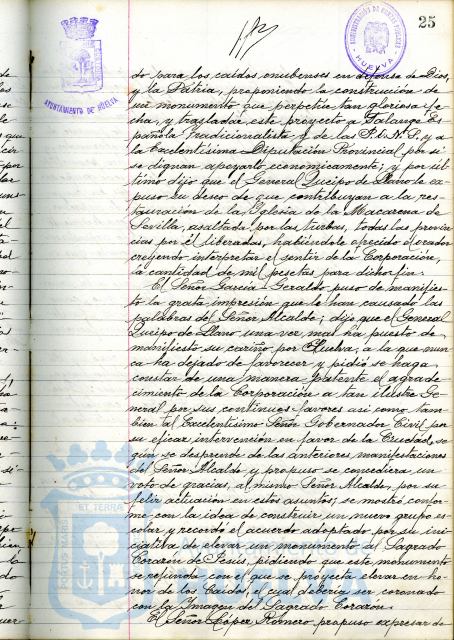 25
AYUNTAMIENTO DE HUELVA
HUELVA
do para los caidos onubenses en defensa de Dios,
y la Patria, proponiendo la construcción de
un monumento que perpetúe tan gloriosa fe
cha, y trasladar este proyecto a Falange Es
pañola Tradicionalista y de las J.O.N.S. y a
la Excelentísima Diputación Provincial por si
se dignan apoyarlo económicamente; y por úl
timo dijo que el General Queipo de Llano le ex
puso su deseo de que contribuyan a la res-
tauración de la Iglesia de la Macarena de
Sevilla, asaltada por las turbas, todas las provin
cias por él liberadas, habiéndole ofrecido el orador
creyendo interpretar el sentir de la Corporación,
la cantidad de mil pesetas para dicho fin.
El Señor García Geraldo puso de manifies-
to la grata impresión que le han causado las
palabras del Señor Alcalde; dijo que el General
Queipo de Llano una vez mas ha puesto de
manifiesto su cariño por Huelva, a la que nun
ca ha dejado de favorecer y pidió se haga
constar de una manera patente el agrade-
cimiento de la Corporación a tan ilustre Ge
neral por sus continuos favores así como tam
bién al Excelentísimo Señor Gobernador Civil por
su eficaz intervención en favor de la Ciudad, se
gún se desprende de las anteriores manifestaciones
del Señor Alcalde y propuso se concediera un
voto de gracias, al mismo Señor Alcalde, por su
feliz actuación en estos asuntos; se mostró confor
me con la idea de construir un nuevo grupo es
colar y recordó el acuerdo adoptado por su ini
ciativa de elevar un monumento al Sagrado
Corazón de Jesús, pidiendo que este monumento
se refunda con el que se proyecta elevar en ho
nor de los Caidos, el cual debería ser coronado
con la Imagen del Sagrado Corazón.
El Señor López Romero propuso expresar de